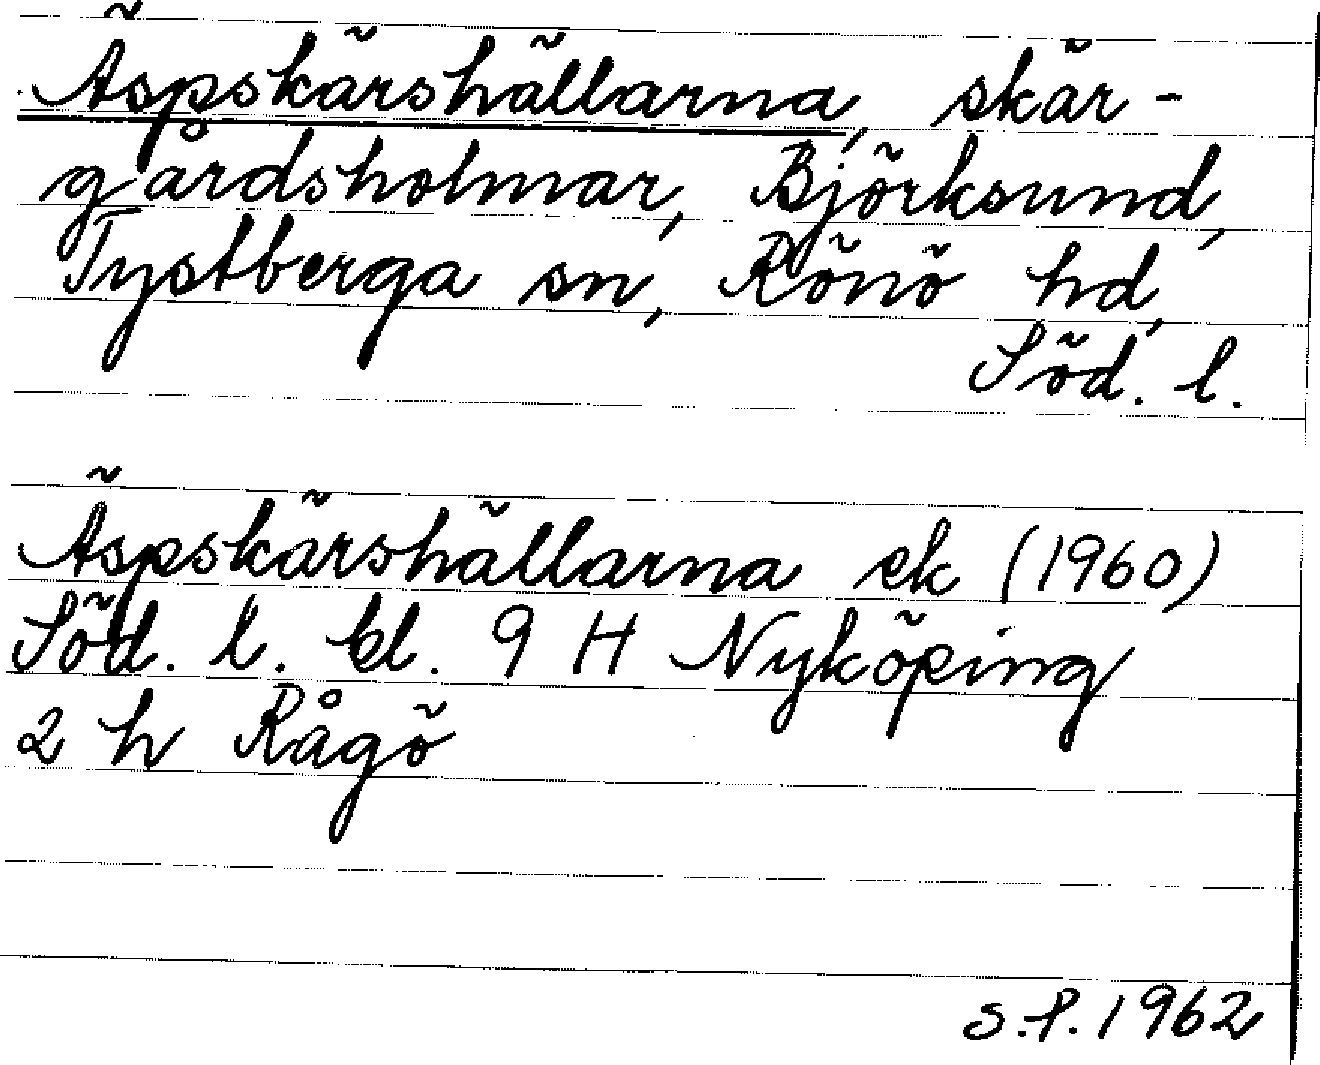 Äspskärshällarna, skär-
gårdsholmar, Björksund,
Tystberga sn, Rönö hd,
Söd. l.
Äspskärshällarna ek (1960)
Söd. l. bl. 9 H Nyköping
2 h Rågö
S.P. 1962